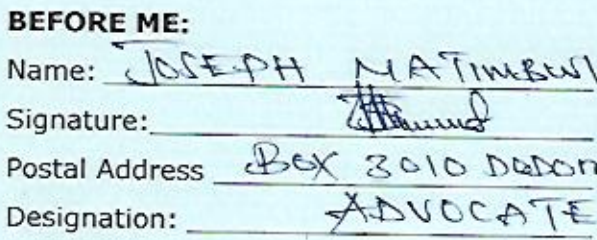 BEFORE ME:
Name: JOSEPH MATIMBWI
Signature:
Postal Address BOX 3010 DODOM
Designation: ADVOCATE